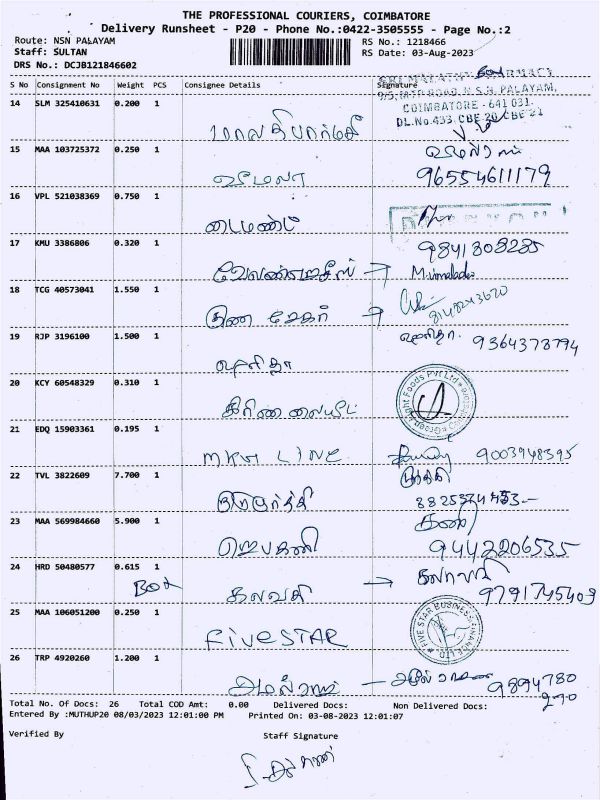 THE PROFESSIONAL COURIERS, COIMBATORE
Delivery Runsheet - P20 - Phone No.:0422-3505555 - Page No.:2
Route: NSN PALAYAM
Staff: SULTAN
DRS No.: DCJB121846602
RS No.: 1218466
RS Date: 03-Aug-2023
S No Consignment No Weight PCS Consignee Details Signature
PHARMACY
9/5, MTP ROAD, N.S.N. PALAYAM,
COIMBATORE - 641 031.
14 SLM 325410631 0.200 1
15 MAA 103725372 0.250 1
விமலா 96554611179
16 VPL 521038369 0.750 1
டைமண்ட்
17 KMU 3386806 0.320 1
9841308285
18 TCG 40573041 1.550 1
குண சேகர்
19 RJP 3196100 1.500 1
9364373794
20 KCY 60548329 0.310 1
Green Light Foods Pvt Ltd
21 EDQ 15903361 0.195 1
MKM LINE 9003948395
22 TVL 3822609 7.700 1
23 MAA 569984660 5.900 1
ஜெபகனி 9442206535
24 HRD 50480577 0.615 1
BOX கலாவதி 9791745409
25 MAA 106051200 0.250 1
FIVE STAR FIVE STAR BUSINESS FINANCE LTD
26 TRP 4920260 1.200 1
அமல்ராஜ் 9894780
270
Total No. Of Docs: 26 Total COD Amt: 0.00 Delivered Docs: Non Delivered Docs:
Entered By :MUTHUP20 08/03/2023 12:01:00 PM Printed On: 03-08-2023 12:01:07
Verified By Staff Signature